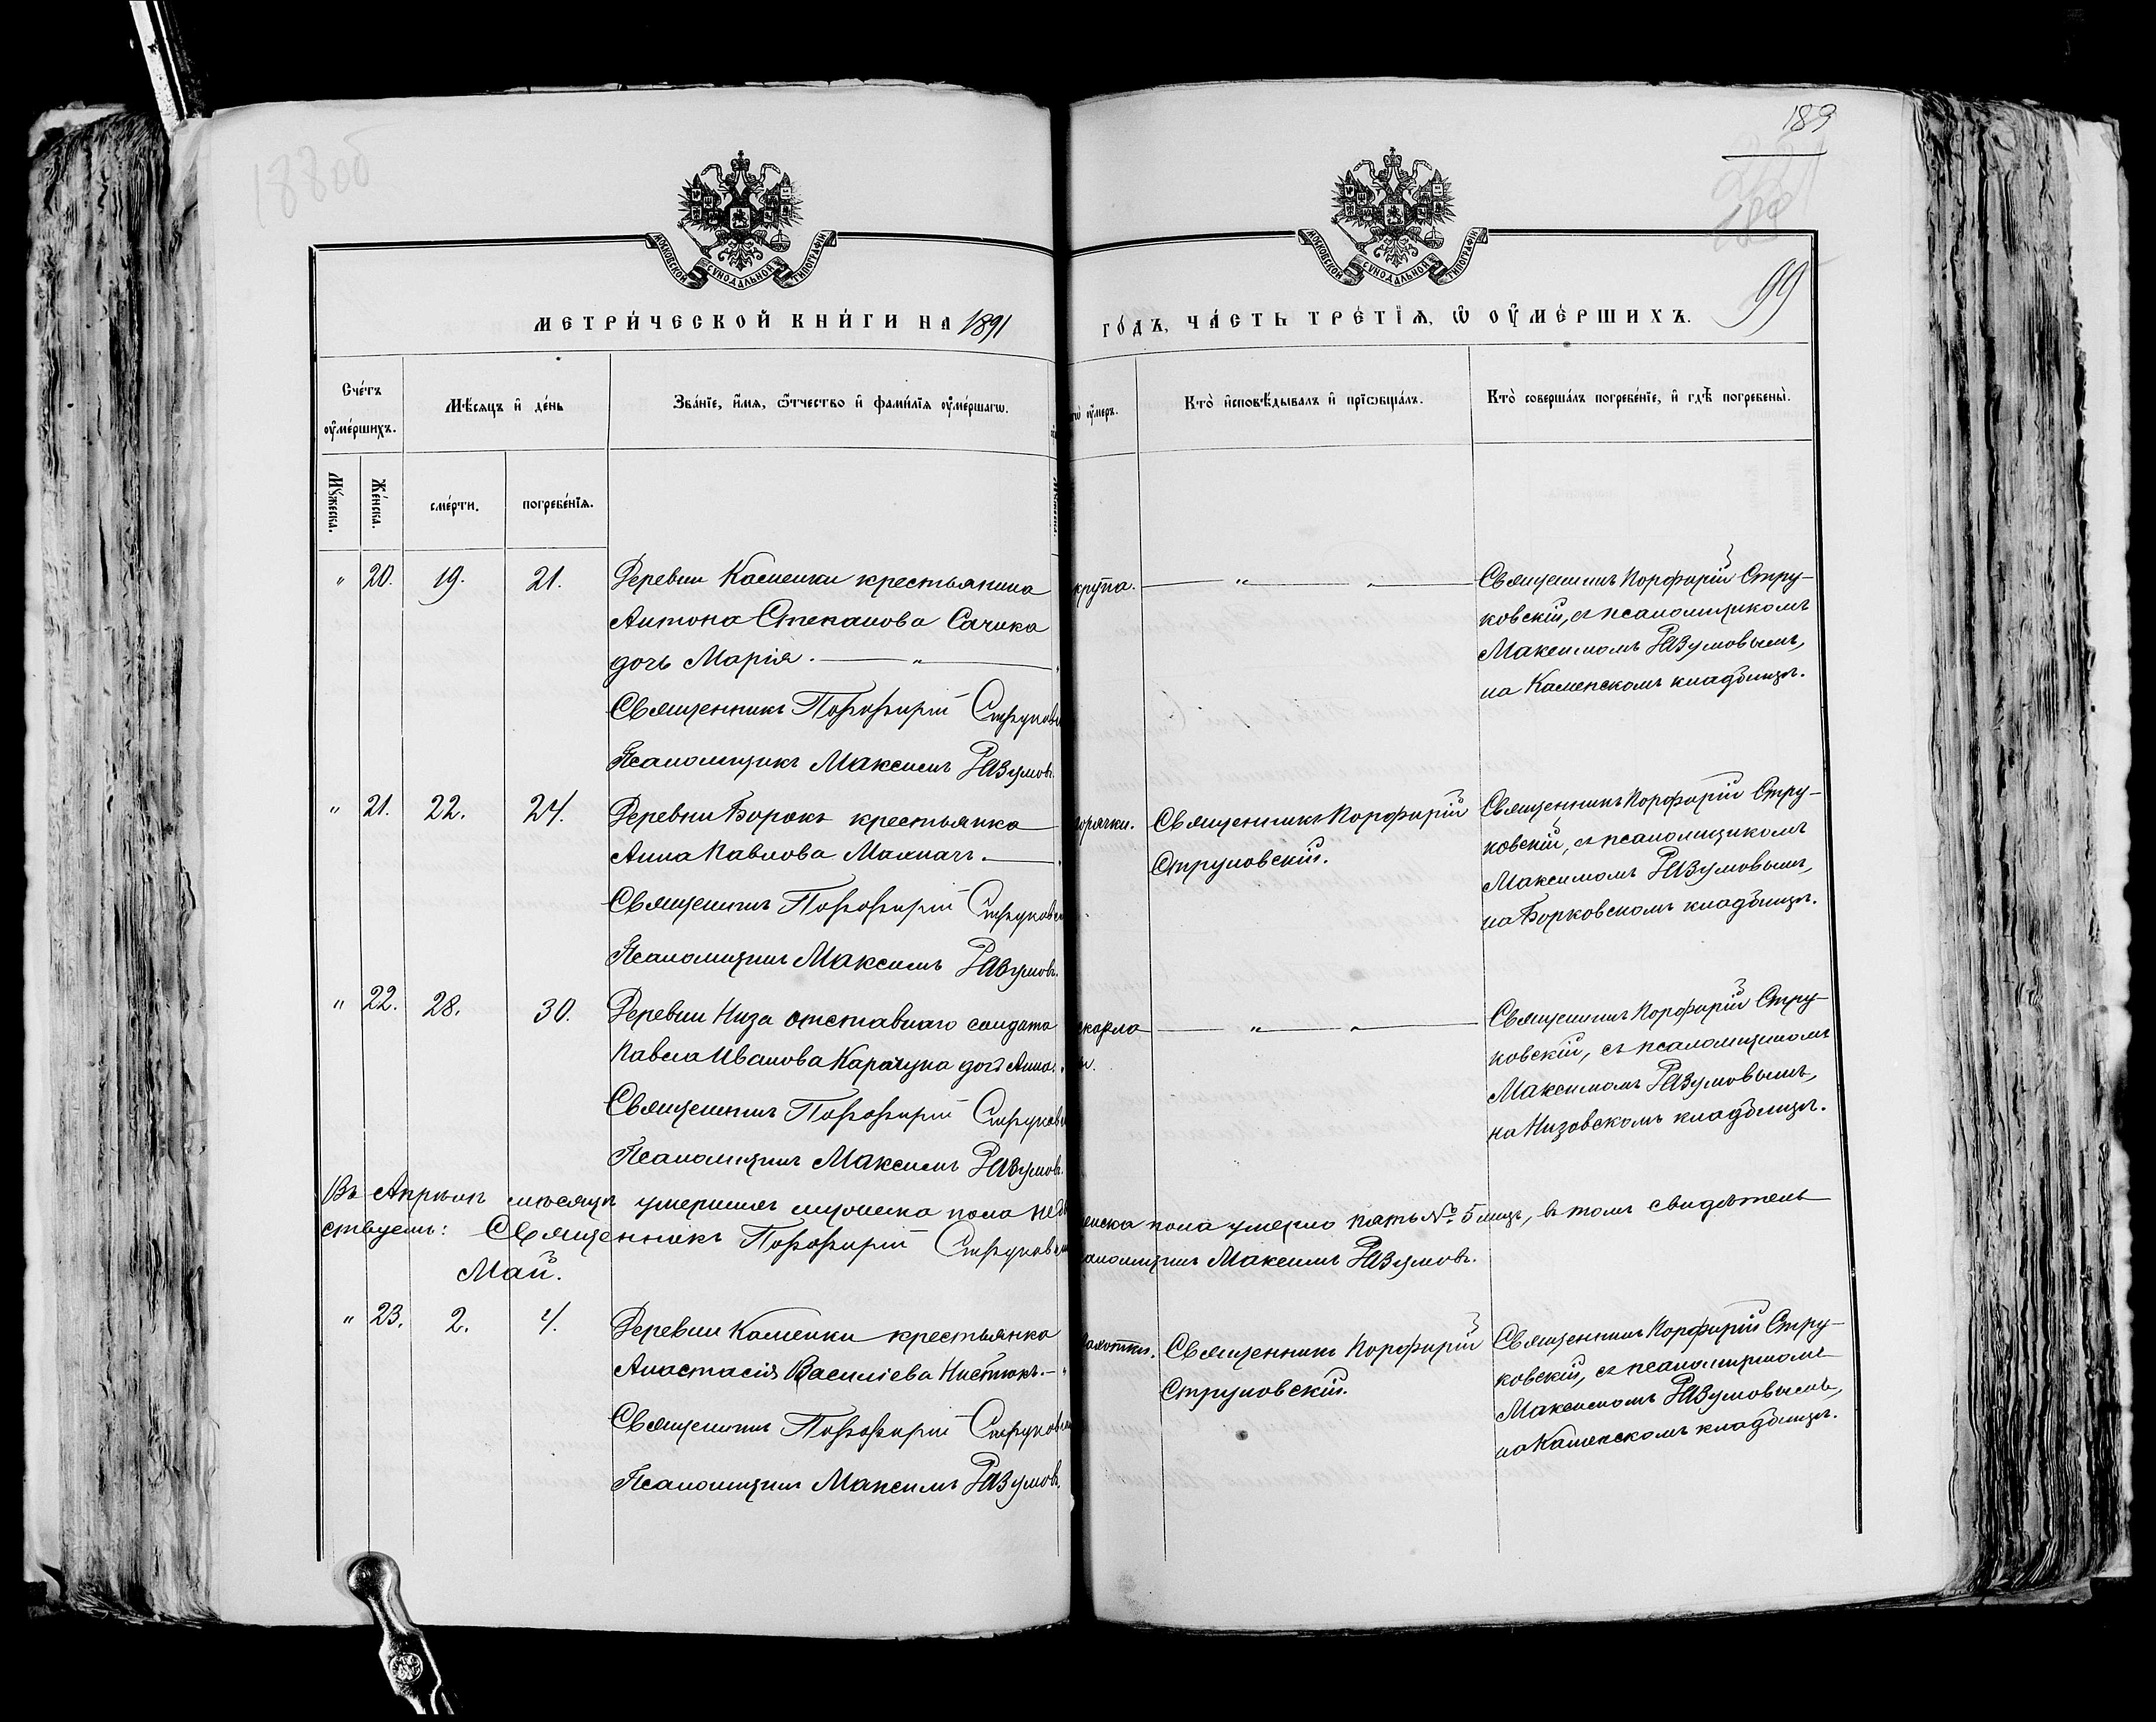 188об
189
99
МОСКОВСКОЙ СѴНОДАЛЬНОЙ ТИПОГРАФІИ
МОСКОВСКОЙ СѴНОДАЛЬНОЙ ТИПОГРАФІИ
МЕТРИ́ЧЕСКОЙ КНИ́ГИ НА 1891
ГО́ДЪ, ЧА́СТЬ ТРЕ́ТІѦ, Ѡ ОУ҆МЕ́РШИХЪ.
Сче́тъ оу҆ме́ршихъ.
Мѣ́сяцъ и҆ де́нь
Зва́нїе, и҆́мѧ, ѻ҆́тчество и҆ фами́лїѧ оу҆ме́ршагѡ.
оу҆́меръ.
Кто̀ и҆сповѣ́дывалъ и҆ прїѡбща́лъ.
Кто̀ соверша́лъ погребе́нїе, и҆ гдѣ̀ погребены̀.
Му́жеска.
Же́нска.
сме́рти.
погребе́нїѧ.
" 20. 19. 21. Деревни Каменки крестьянина
Антона Степанова Сачика
дочь Марія. — " —
Священникъ Порфирій
Псаломщикъ Максимъ Разумовъ.
крупа. — " — " —
Священникъ Порфирій Стру-
ковскій, съ псаломщикомъ
Максимомъ Разумовымъ,
на Каменскомъ кладбищѣ.
" 21. 22. 24. Деревни Борокъ крестьянка
Анна Павлова Махначъ. —
Священникъ Порфирій
Псаломщикъ Максимъ Разумовъ.
горячки. Священникъ Порфирій
Струковскій.
Священникъ Порфирій Стру-
ковскій, съ псаломщикомъ
Максимомъ Разумовымъ,
на Борковскомъ кладбищѣ.
" 22. 28. 30. Деревни Низа отставнаго солдата
Павла Иванова Карачуна дочь Анна.
Священникъ Порфирій
Псаломщикъ Максимъ Разумовъ.
— " — " —
Священникъ Порфирій Стру-
ковскій, съ псаломщикомъ
Максимомъ Разумовымъ,
на Низовскомъ кладбищѣ.
Въ Апрѣлѣ мѣсяцѣ умершихъ мужеска пола
женска пола умерло пять № 5 лицъ, въ томъ свидѣтель
ствуемъ: Священникъ Порфирій
Максимъ Разумовъ.
Май.
" 23. 2. 4. Деревни Каменки крестьянка
Анастасія Василіева —
Священникъ Порфирій
Псаломщикъ Максимъ Разумовъ.
Священникъ Порфирій
Струковскій.
Священникъ Порфирій Стру-
ковскій, съ псаломщикомъ
Максимомъ Разумовымъ,
на Каменскомъ кладбищѣ.